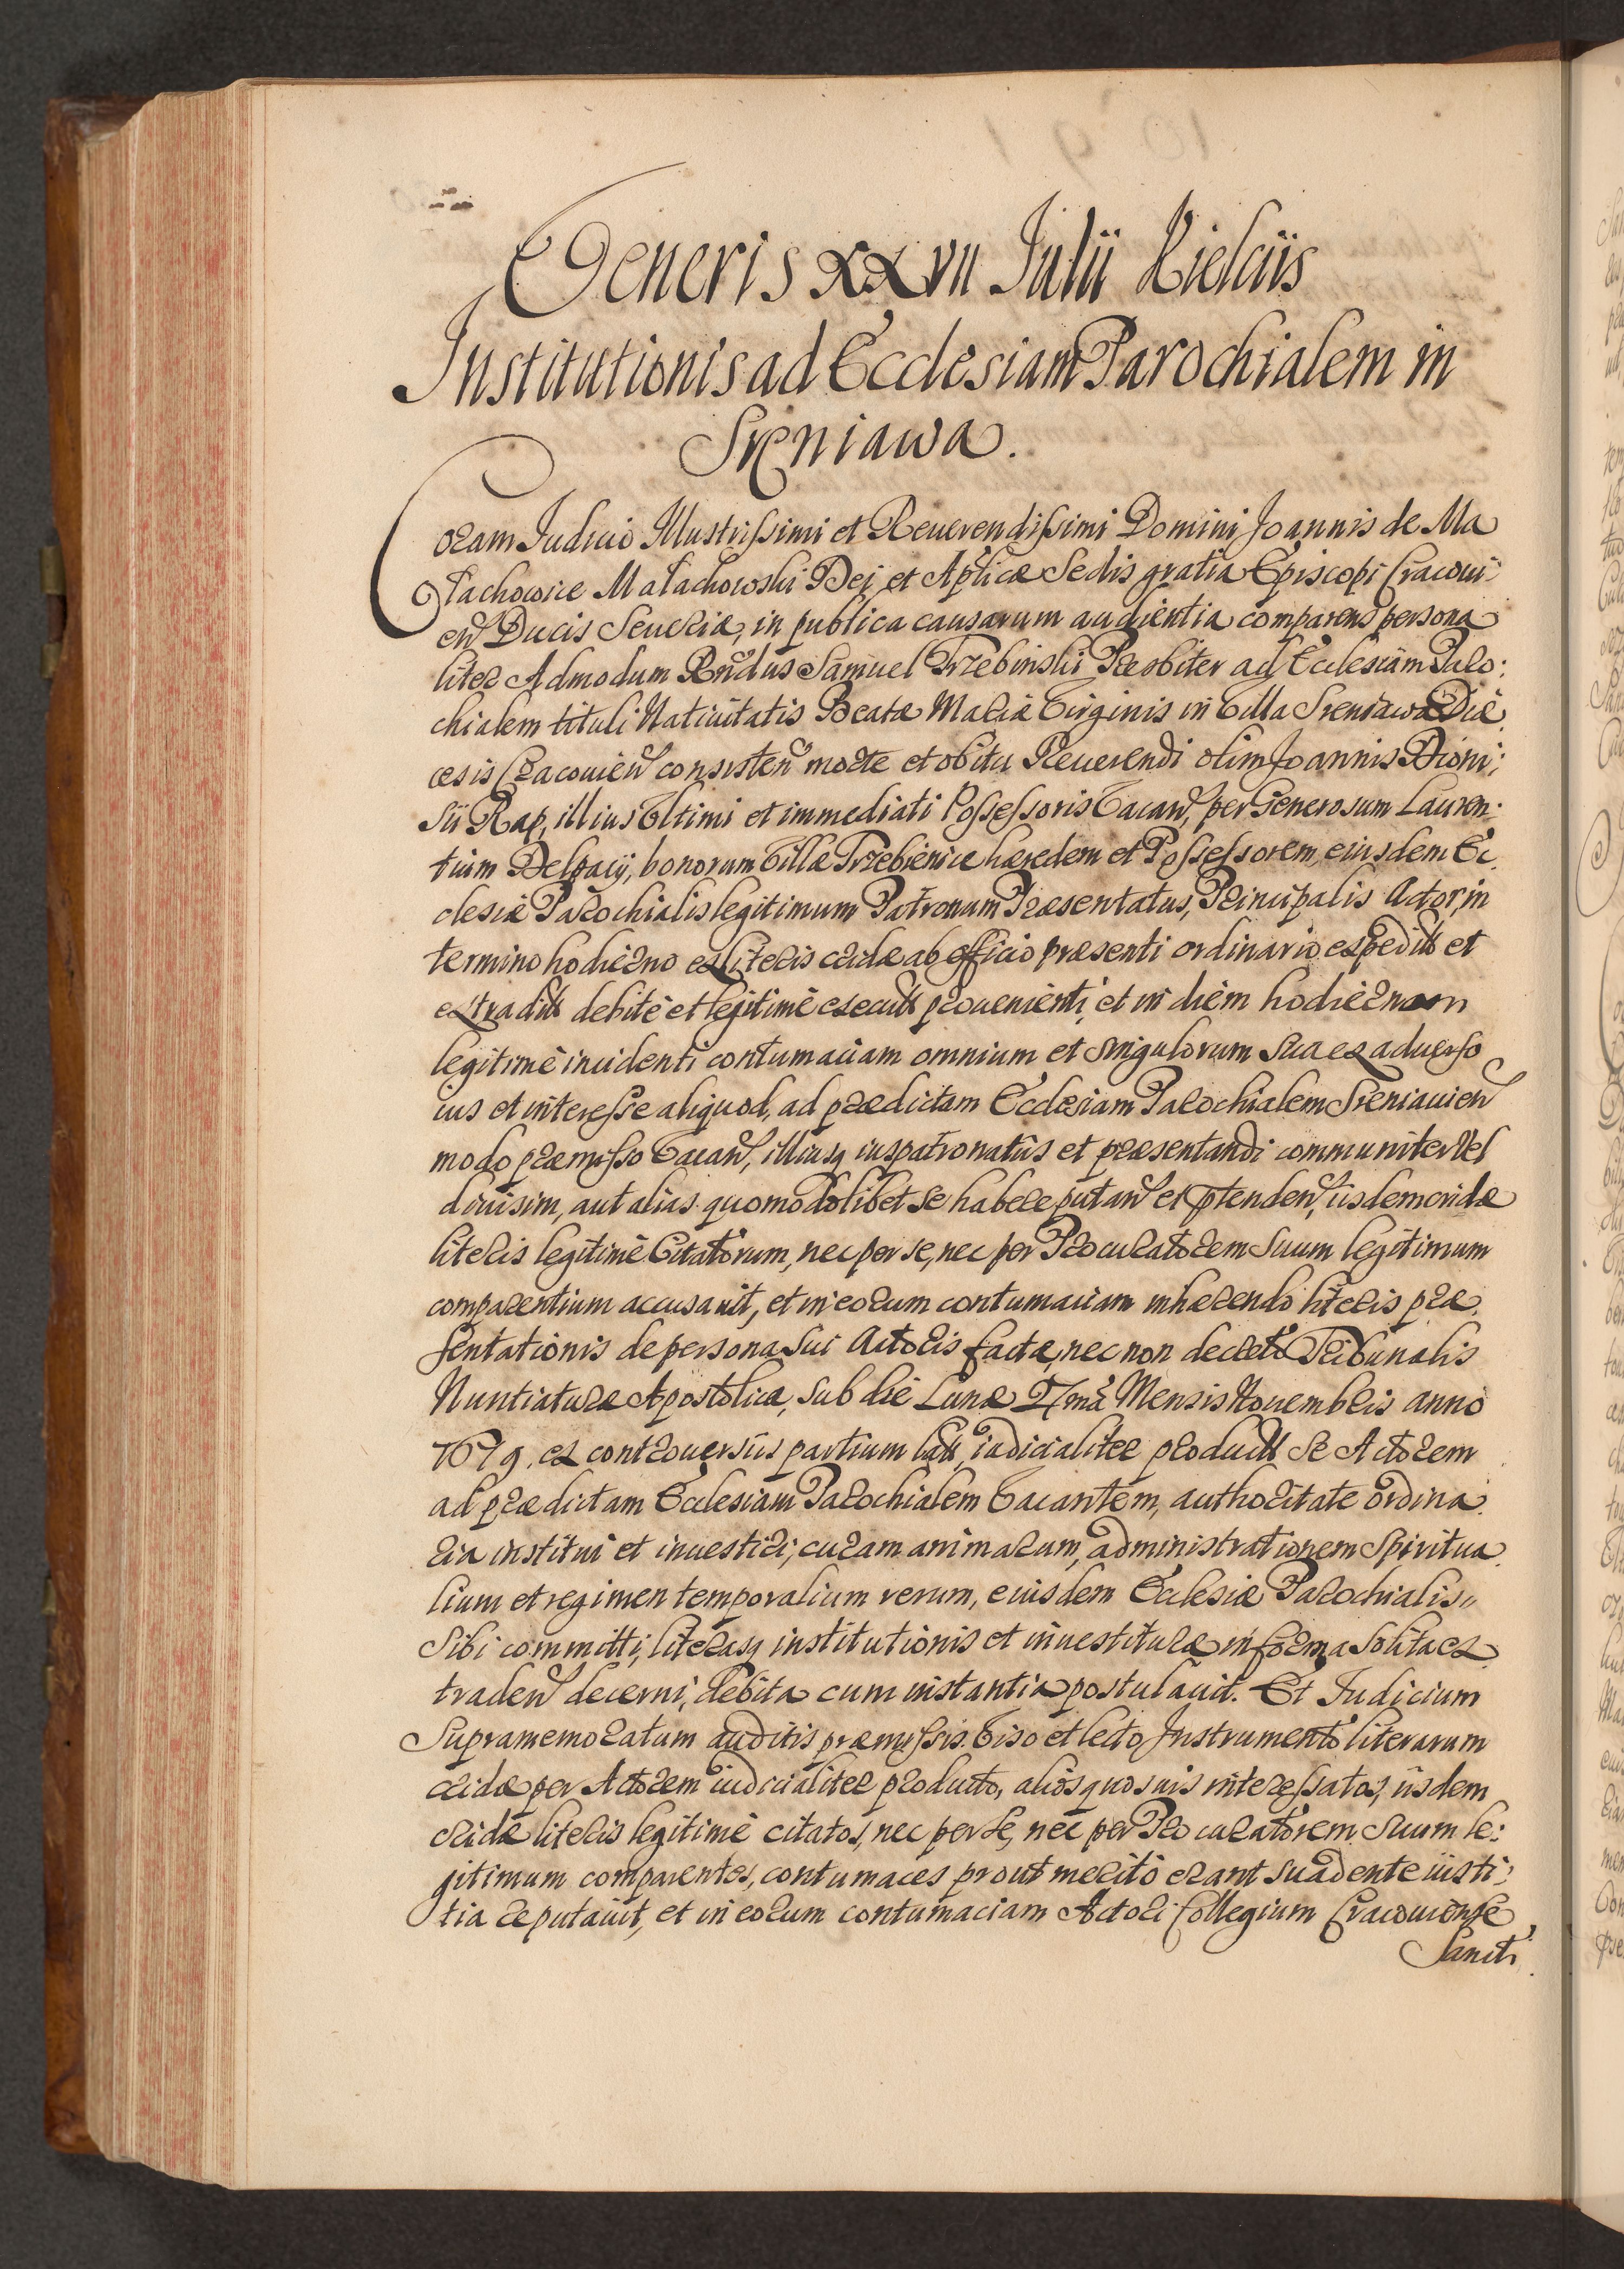 Veneris XXVII Julii Kielciis
Institutionis ad Ecclesiam Parochialem in
Sreniawa.
Coram Judicio Illustrissimi et Reuerendissimi Domini Joannis de Ma
łachowice Małachowski Dei et Aplicæ Sedis gratia Episcopi Cracoui:
en Ducis Seueriæ, in publica causarum audientia comparens persona
liter Admodum Rndus Samuel Trzebinski Præsbiter ad Ecclesiam Paro:
chialem tituli Natiuitatis Beatæ Mariæ Virginis in Villa Sreniawa Diæ
cesis Cracouien consisten morte et obitu Reuerendi olim Joannis Dioni:
sii Rap, illius Vltimi et immediati Possessoris Vacan, per Generosum Lauren:
tium Delpacy, bonorum Villæ Trzebienice hæredem et Possessorem, eiusdem Ec
clesiæ Parochialis legitimum Patronum Præsentatus, Principalis Actor, in
termino hodierno ex literis cridæ ab officio præsenti ordinario expeditt et
extraditt debitè et legitimè executt prouenienti, et in diem hodiernam
legitimè incidenti contumaciam omnium et singulorum sua ex aduerso
ius et interesse aliquod, ad prædictam Ecclesiam Parochialem Sreniauien
modo præmisso Vacan, illiusq iuspatronatûs et præsentandi communiter Vel
diuisim, aut alias quomodolibet se habere putan et prtenden, iisdem cridæ
literis legitimè Citatorum, nec per se, nec per Procuratorem suum legitimum
comparentium accusauit, et in eorum contumaciam inhærendo literis præ
sentationis de persona sui Actoris factæ, nec non decreto Tribunalis
Nuntiaturæ Apostolicæ, sub die Lunæ 27ma Mensis Nouembris anno
1679. ex controuersiis partium latt, iudicialiter productt se Actorem
ad prædictam Ecclesiam Parochialem Vacantem, authoritate ordina
ria institui et inuestiri, curam animarum, administrationem Spiritua
lium et regimen temporalium rerum, eiusdem Ecclesiæ Parochialis
sibi committi, literasq institutionis et inuestituræ in forma solita ex
traden decerni, debita cum instantia postulauit. Et Iudicium
Supramemoratum auditis præmissis. Viso et lecto Instrumento literarum
cridæ per Actorem iudicialiter producto, alios quosuis interessatos, iisdem
cridæ literis legitimè citatos, nec per se, nec per Procuratorem suum le:
gitimum comparentes, contumaces prout meritò erant suadente iusti:
tia reputauit, et in eorum contumaciam Actori Collegium Cracouiense
Sancti